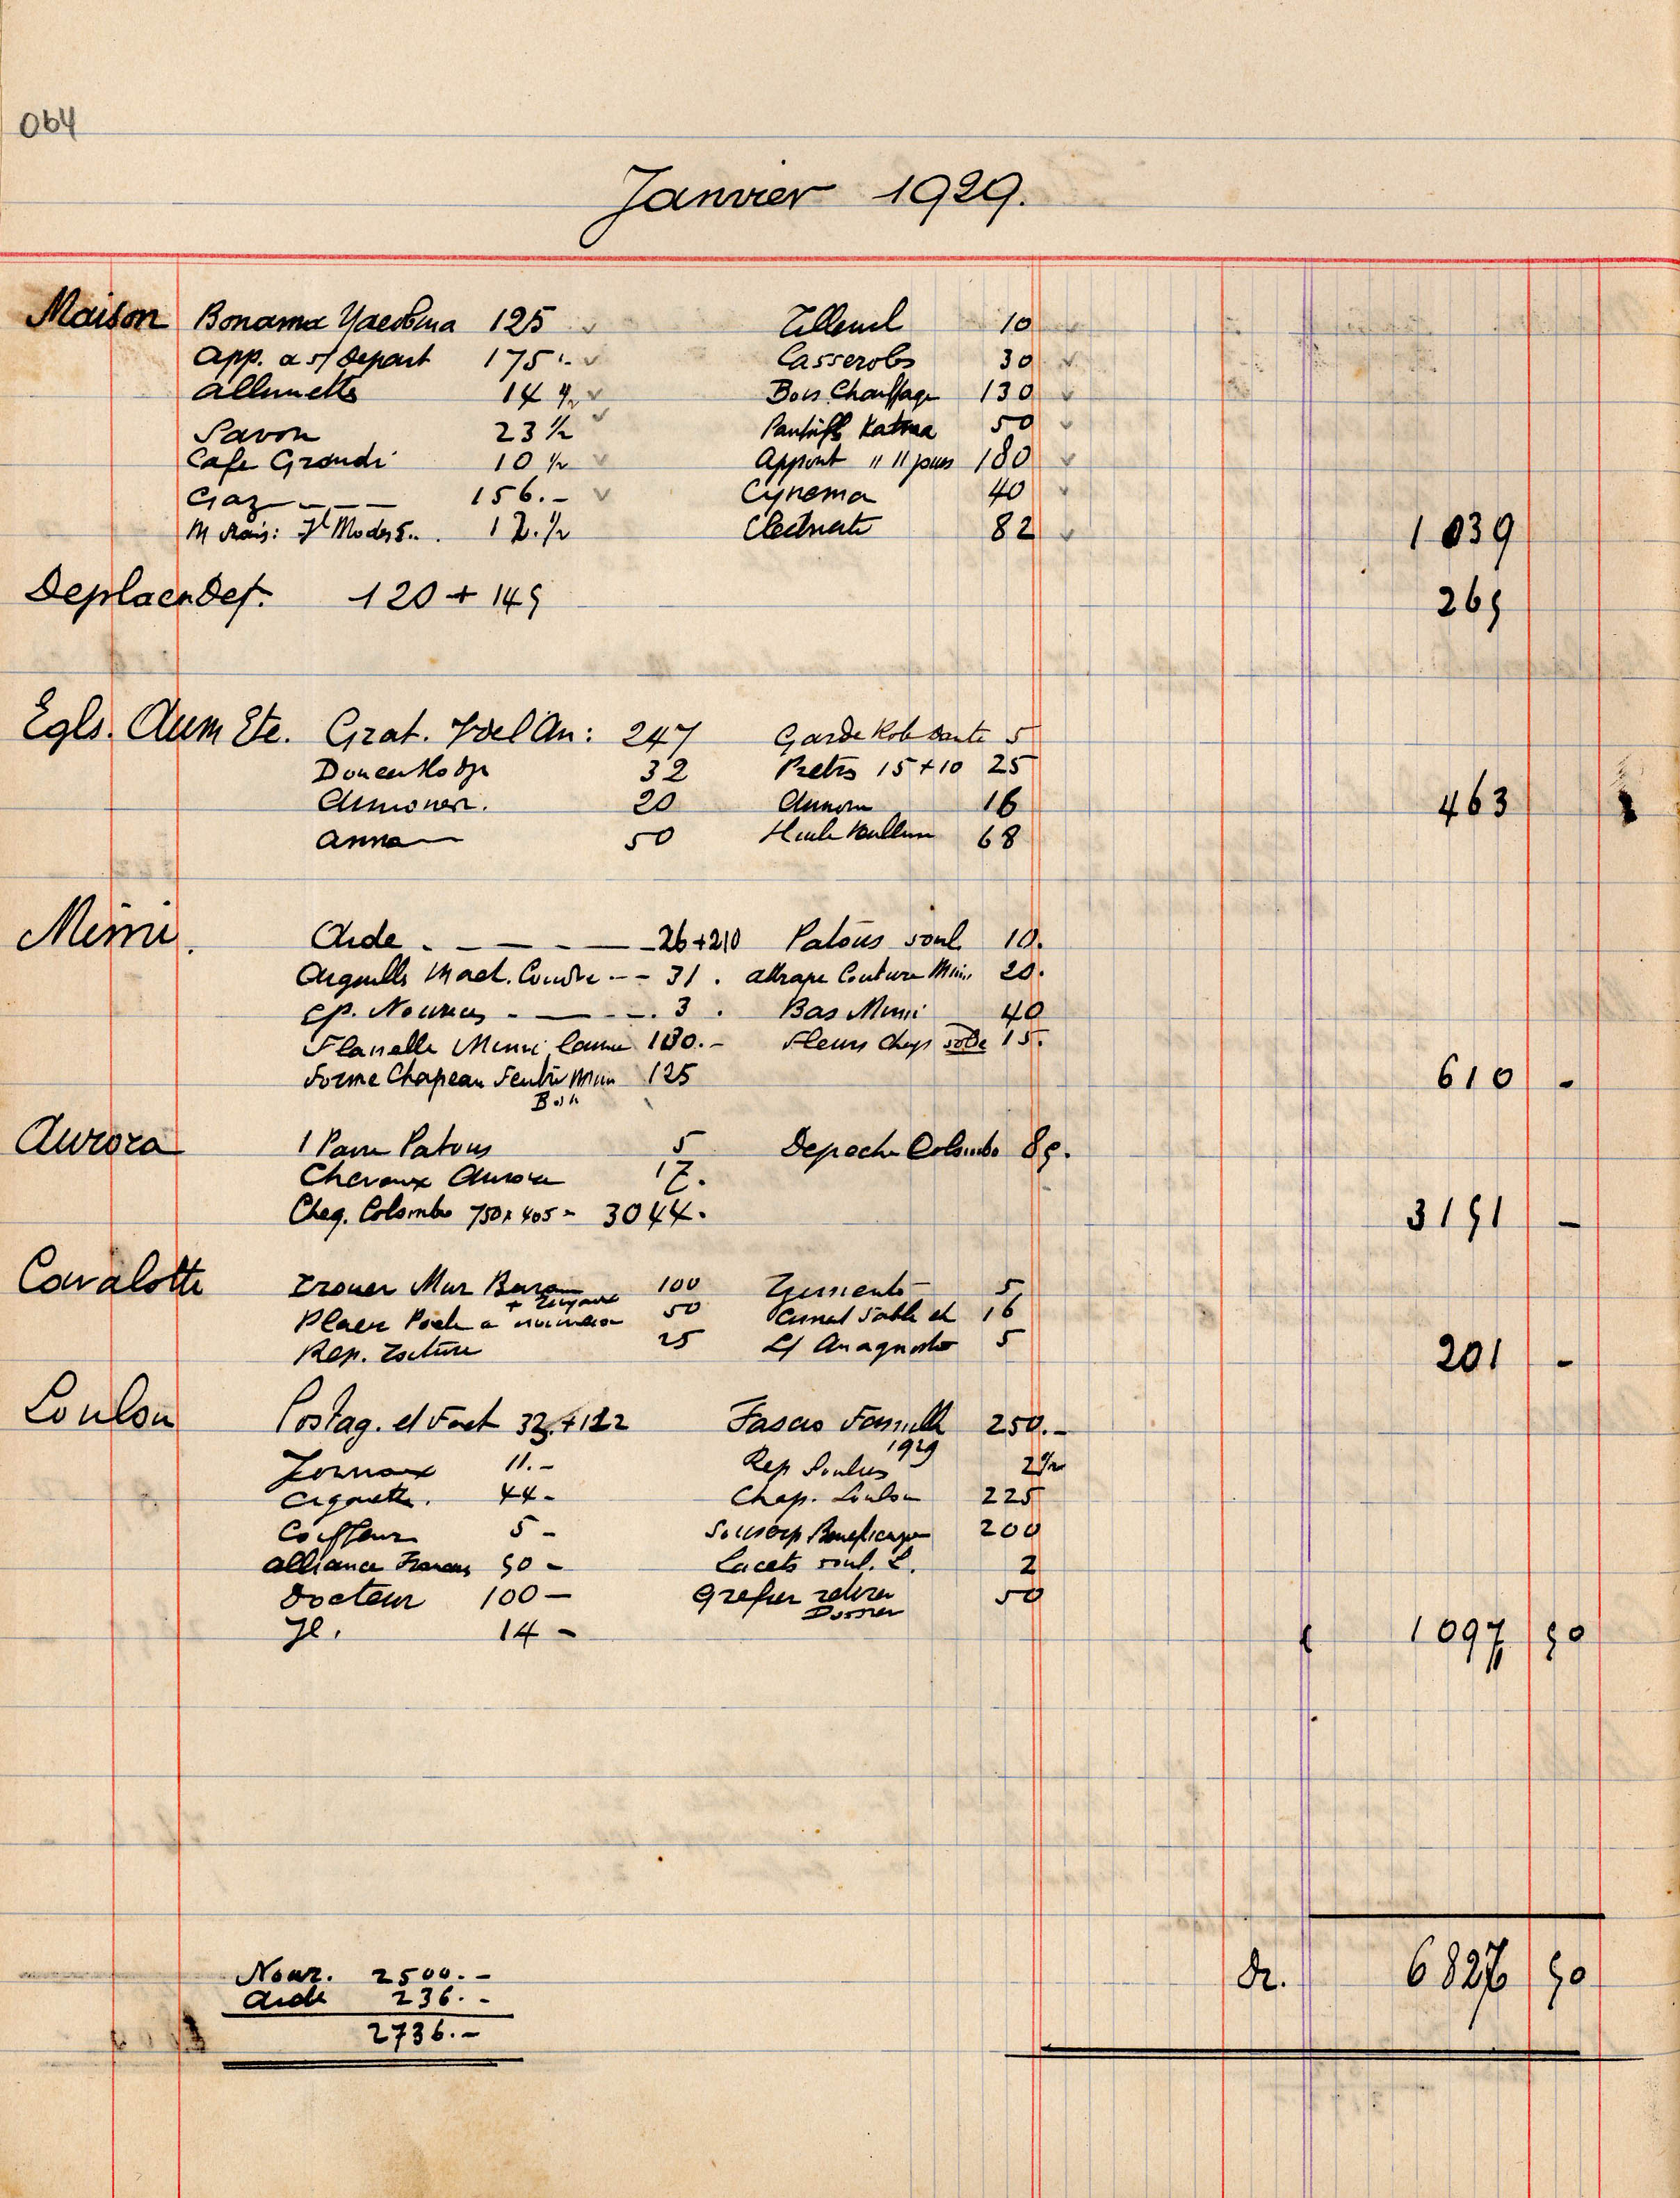 064
Janvier 1929.
Maison Bonama Yacobina 125 Tilleul 10
App. a s/ Depart 175.- Casserols 30
Allumetts 14 ½ Bois Chauffage 130
Savon 23 ½ Pantufls Katina 50
Cafe Grondi 10 ½ Appont " 11 jours 180
Gaz 156.- Cynema 40
12.½ Electricite 82 1039
Deplacem Def. 120 + 149 269
Egls. Aum Etc. Grat. Jdel An: 247 Garde Robe 5
32 Pretrs 15+10 25
Aumoner. 20 16 463
Anna 50 Huile 68
Mimi. Aide 26+210 Patous soul 10.
Aiguills Mach. Coudre -- 31. attrape Couture Mimi 20.
Ep. Nourrices 3. Bas Mimi 40
Flanelle Mimi 180.- Fleurs Chap 15.
Forme Chapeau Feutre Mimi 125 610 -
Aurora 1 Paire Patous 5 Depeche Colombo 89.
Cheveux Aurora 17.
Cheq. Colombo 750 x 405 = 3044. 3151 -
Cavalotte Trouer Mur 100 5
Placer Poele a 50 Sable et 16
Rep. Toiture 25 Anagnosto 5 201 -
Loulou Postag. et 32.+122 Fascio Famille 250.-
1929
Jornaux 11.- Rep Soulies 2½
Cigarette. 44- Chap. Loulou 225
Coiffeur 5- Souscrip 200
Alliance Francais 50- Lacets soul. L. 2
Docteur 100- Grefier retirer 50
Dossier
Jl. 14- 1097 50
Nour. 2500.- Dr. 6827 50
Aide 236.-
2736.-